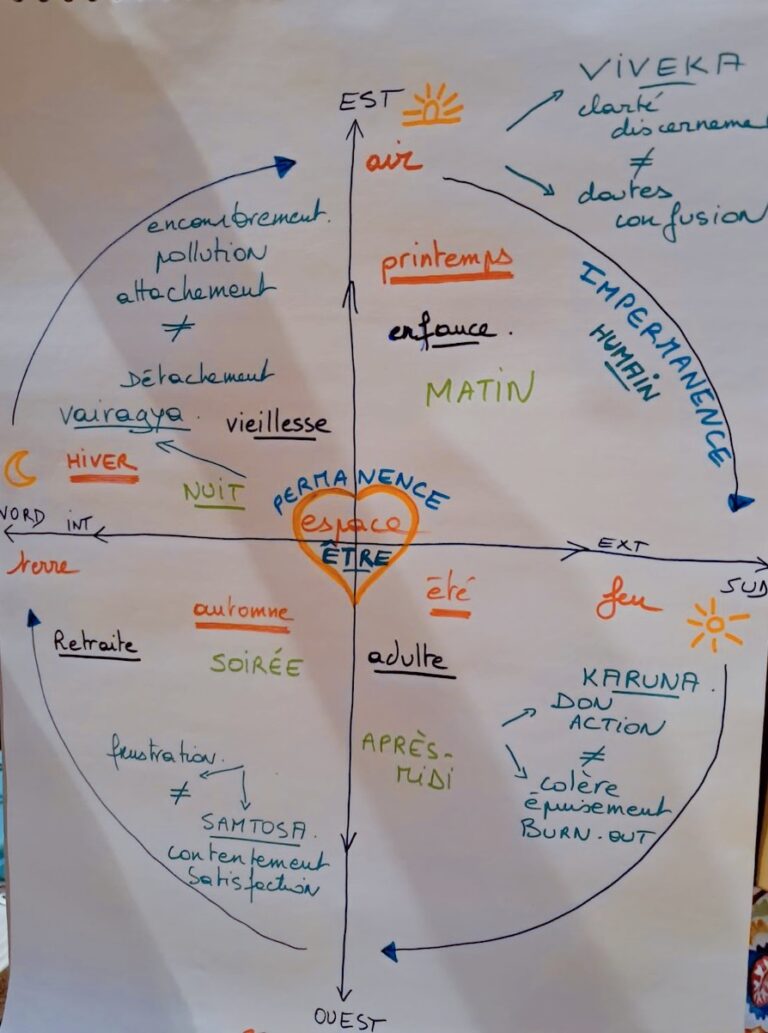 EST
air
VIVEKA
clarté
discerneme
≠
doutes
confusion
encombrement.
pollution
attachement
≠
Détachement
vairagya.
printemps
enfance.
MATIN
IMPERMANENCE
HUMAIN
vieillesse
HIVER
NUIT
PERMANENCE
espace
ÊTRE
NORD INT
EXT
SUD
terre
automne
Retraite
SOIRÉE
été
feu
adulte
APRÈS-
MIDI
KARUNA.
DON
ACTION
≠
colère
épuisement
BURN-OUT
frustration.
≠
SAMTOSA.
contentement
satisfaction
OUEST